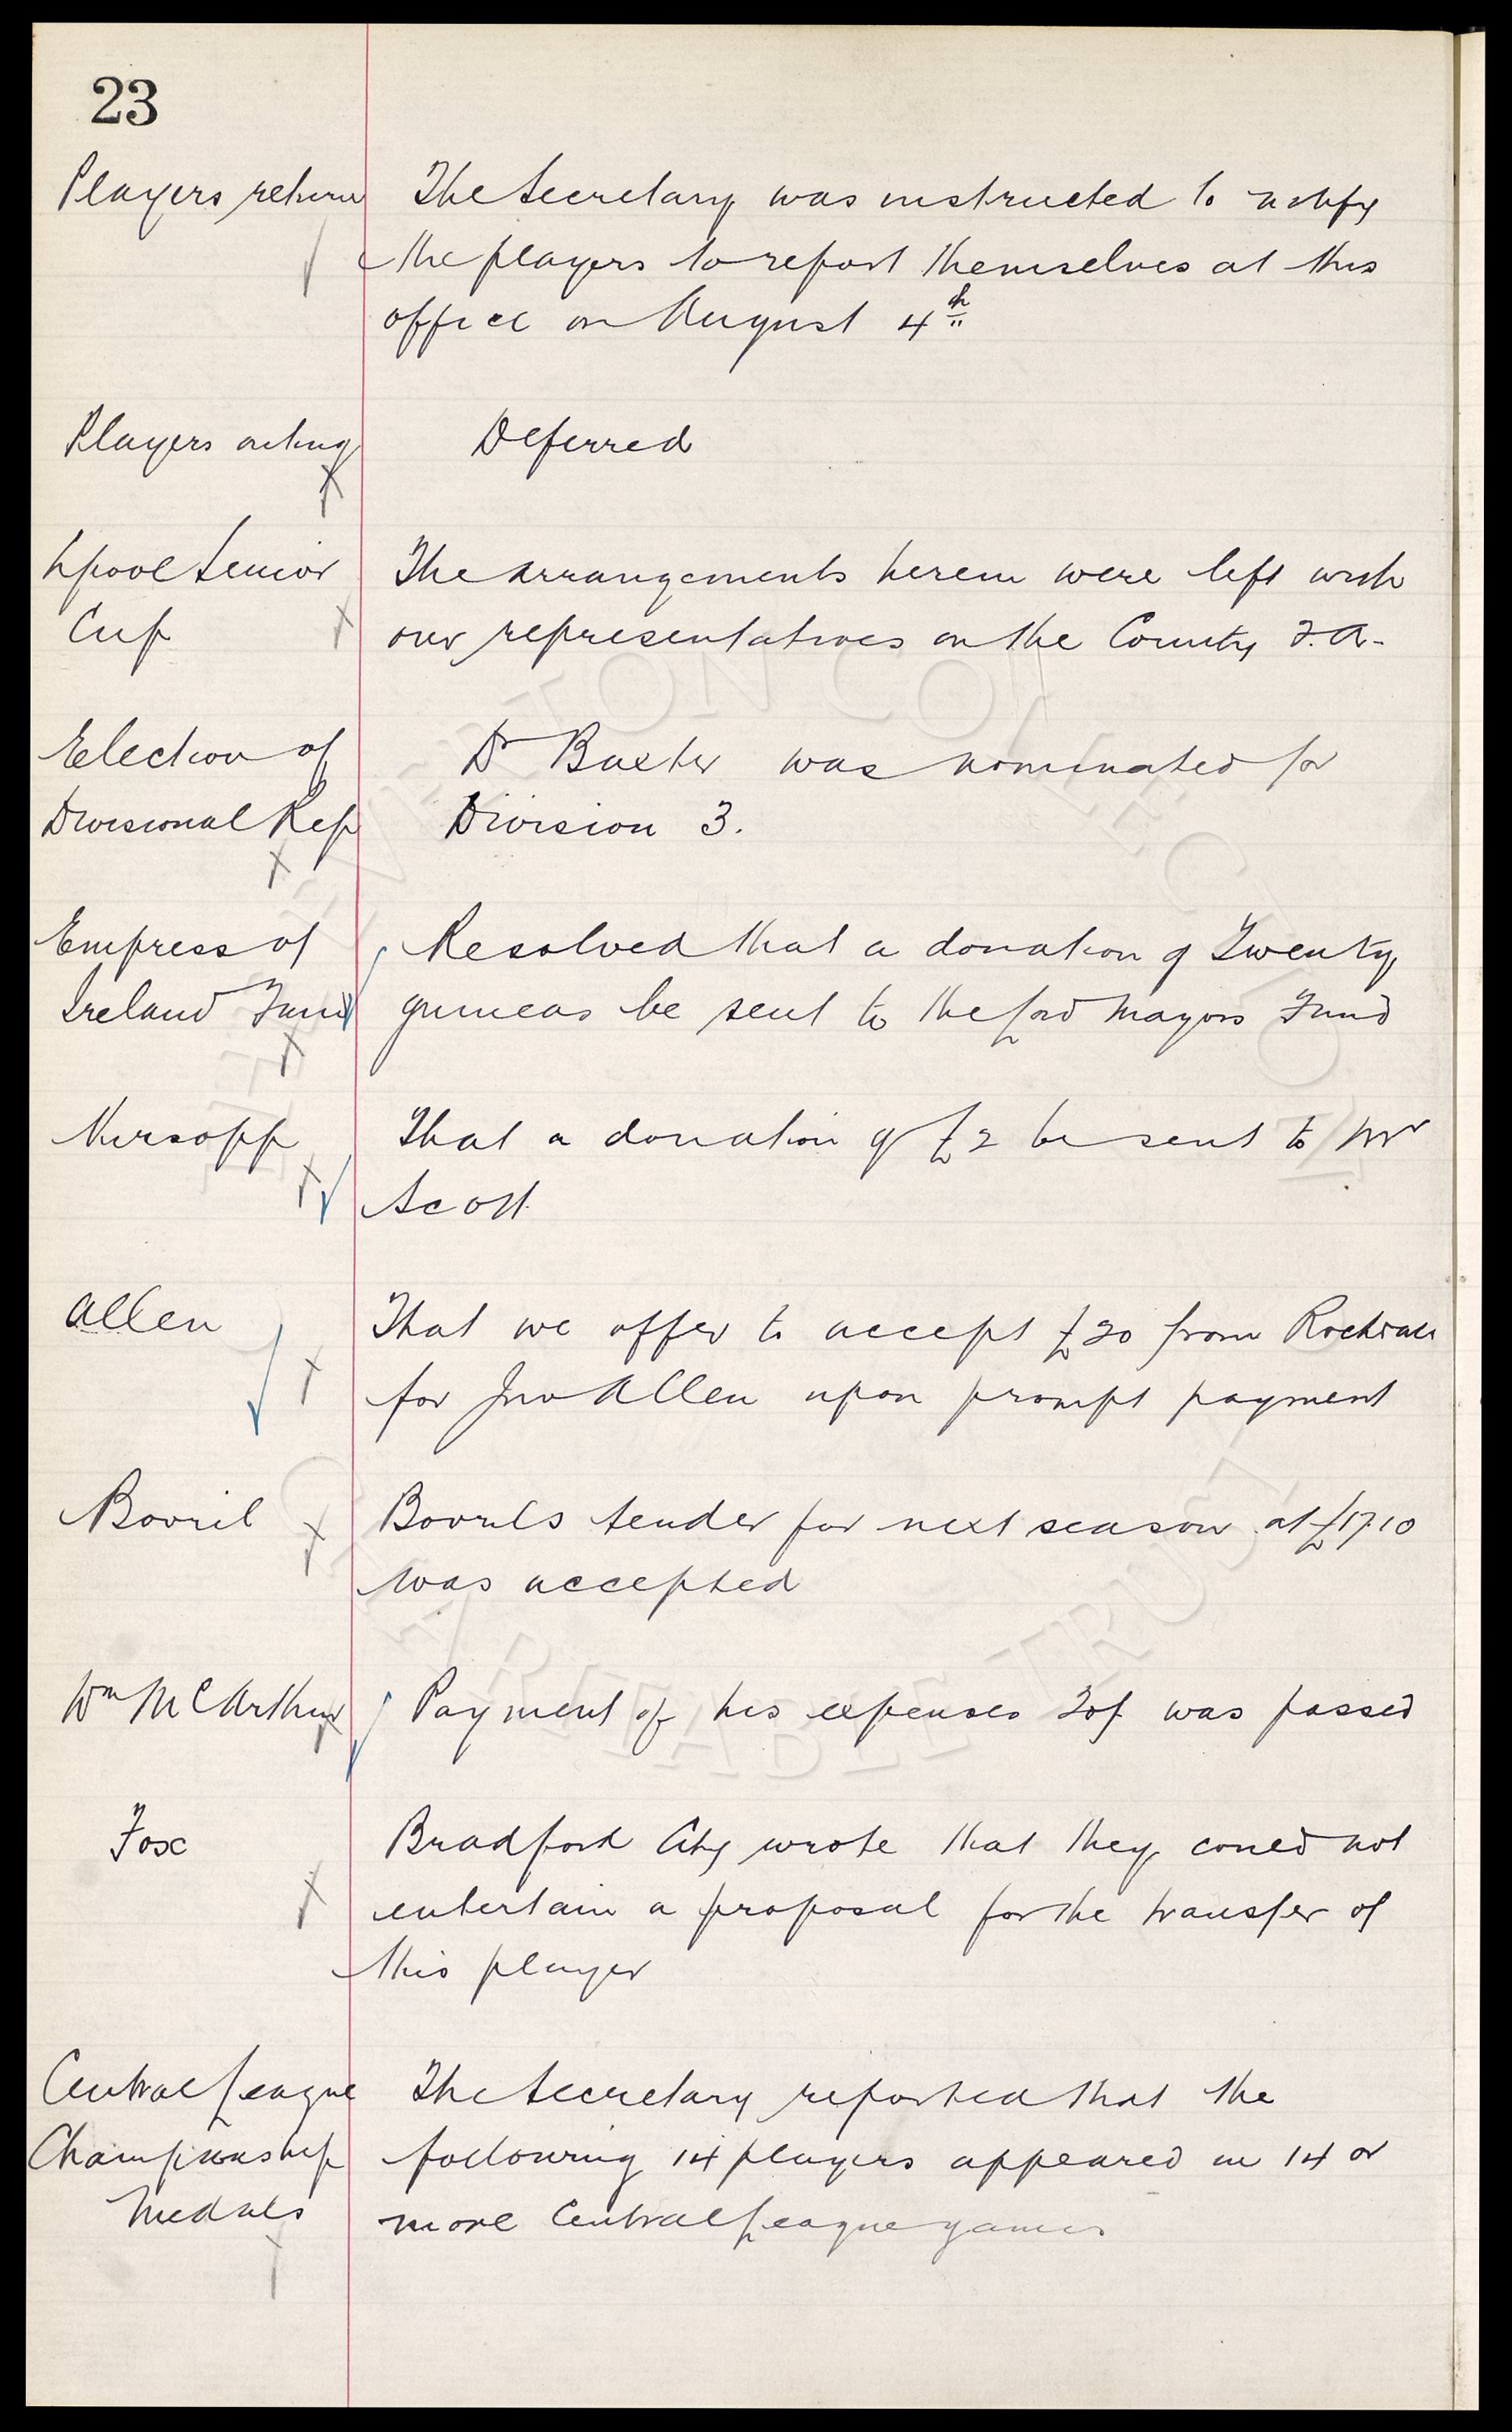 23
Players return
The Secretary was instructed to notify
the players to report themselves at this
office on August 4th
Players outing
Deferred
Lpool Senior
Cup
The arrangements herein were left with
our representatives on the County F.A.
Election of
Divisional Rep
Dr Baxter was nominated for
Division 3.
Empress of
Ireland Fund
Resolved that a donation of Twenty
guineas be sent to the Lord Mayors Fund
Kirsopp
That a donation of £2 be sent to Mr
Scott
Allen
That we offer to accept £20 from Rochdale
for Jno Allen upon prompt payment
Bovril
Bovrils tender for next season at £17.10
was accepted
Wm McArthur
Payment of his expenses 20/- was passed
Fox
Bradford City wrote that they could not
entertain a proposal for the transfer of
this player
Central League
Championship
Medals
The Secretary reported that the
following 14 players appeared in 14 or
more Central League games
THE EVERTON COLLECTION
CHARITABLE TRUST